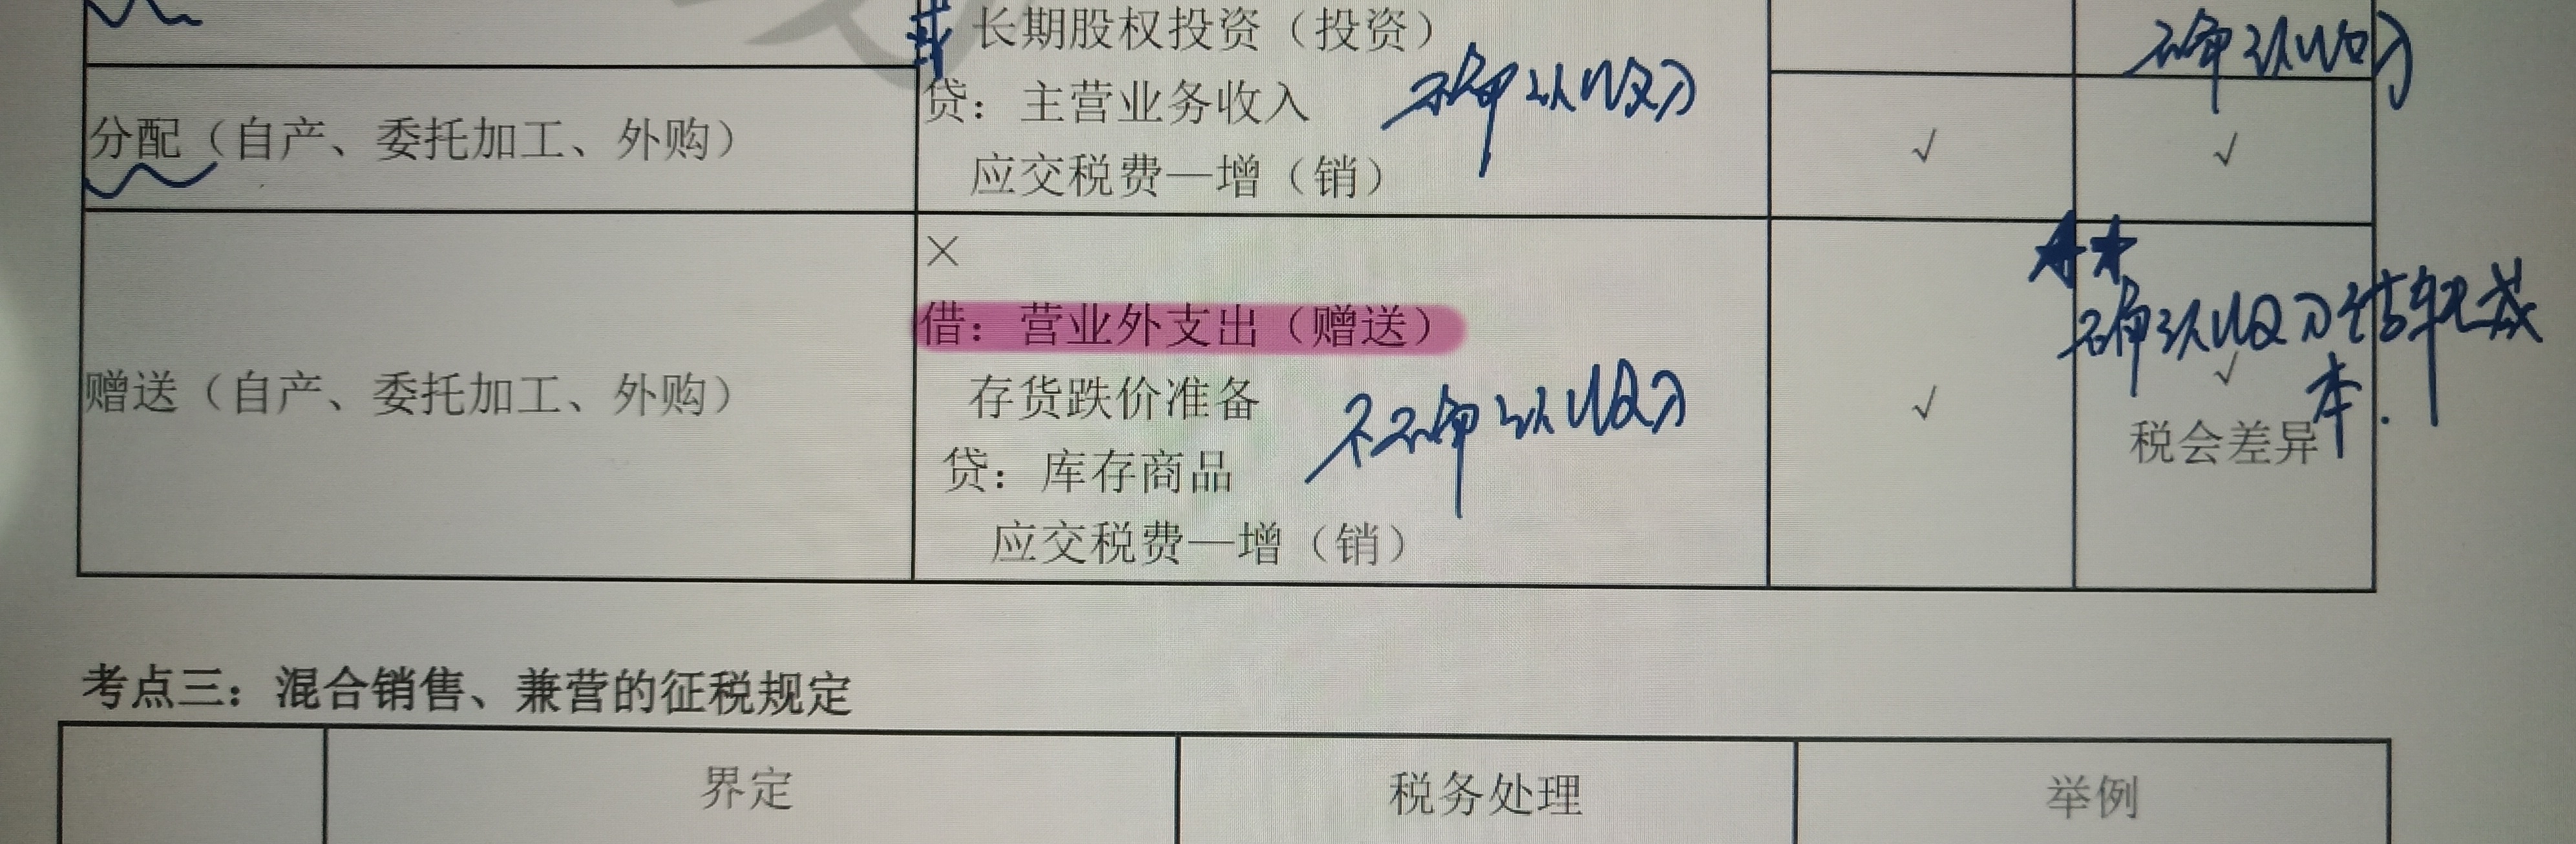 长期股权投资（投资）
确认收入
贷：主营业务收入
确认收入
分配（自产、委托加工、外购）
应交税费—增（销）
√
√
×
借：营业外支出（赠送）
确认收入结转成
本.
赠送（自产、委托加工、外购）
存货跌价准备
不确认收入
√
√
税会差异
贷：库存商品
应交税费—增（销）
考点三：混合销售、兼营的征税规定
界定
税务处理
举例